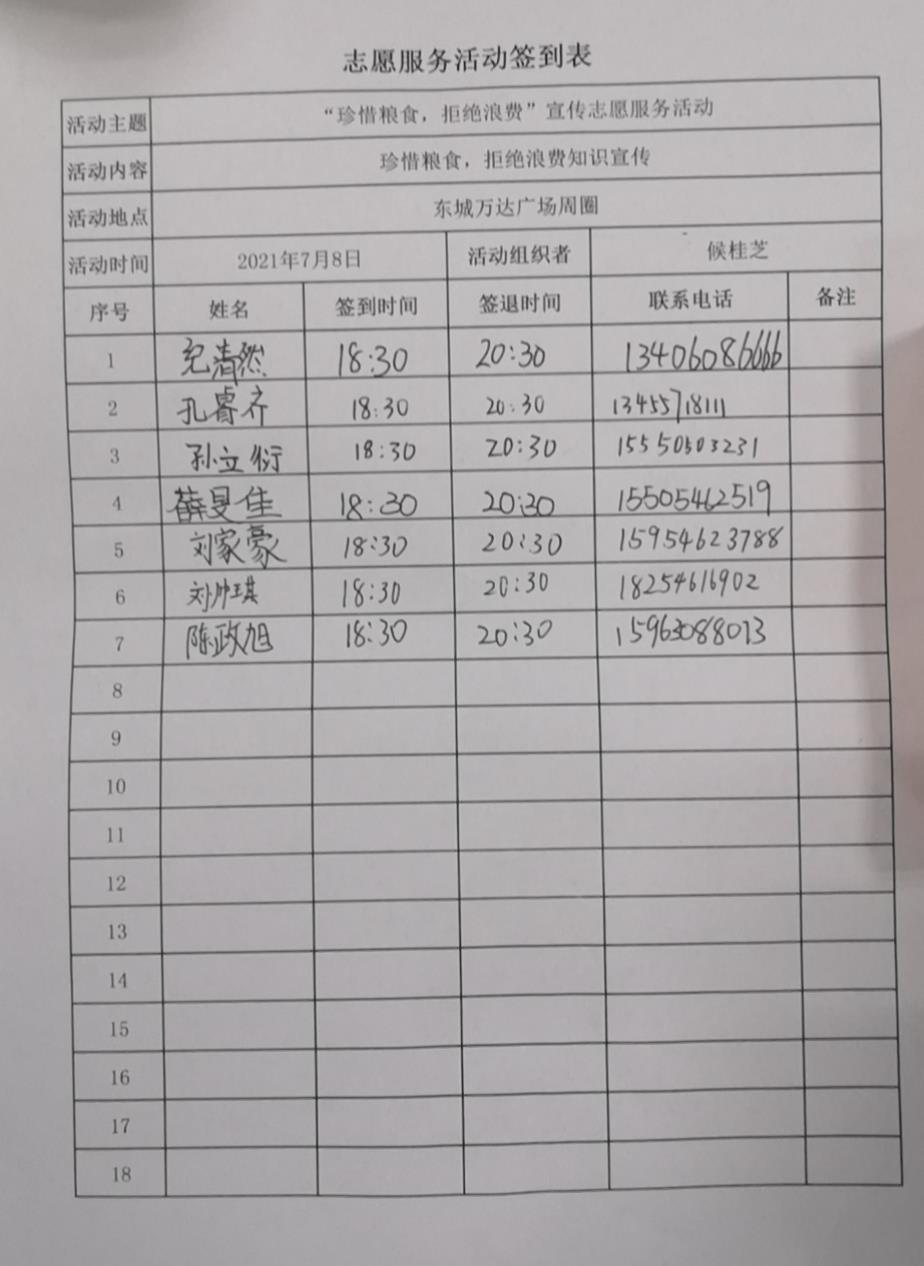 志愿服务活动签到表
活动主题 “珍惜粮食，拒绝浪费”宣传志愿服务活动
活动内容 珍惜粮食，拒绝浪费知识宣传
活动地点 东城万达广场周圈
活动时间 2021年7月8日 活动组织者 候桂芝
序号 姓名 签到时间 签退时间 联系电话 备注
1 纪清然 18:30 20:30 13406086666
2 孔睿齐 18:30 20:30 13455718111
3 孙立衍 18:30 20:30 15550503231
4 薛旻佳 18:30 20:30 15505462519
5 刘家豪 18:30 20:30 15954623788
6 刘帅琪 18:30 20:30 18254616902
7 陈政旭 18:30 20:30 15963088013
8
9
10
11
12
13
14
15
16
17
18